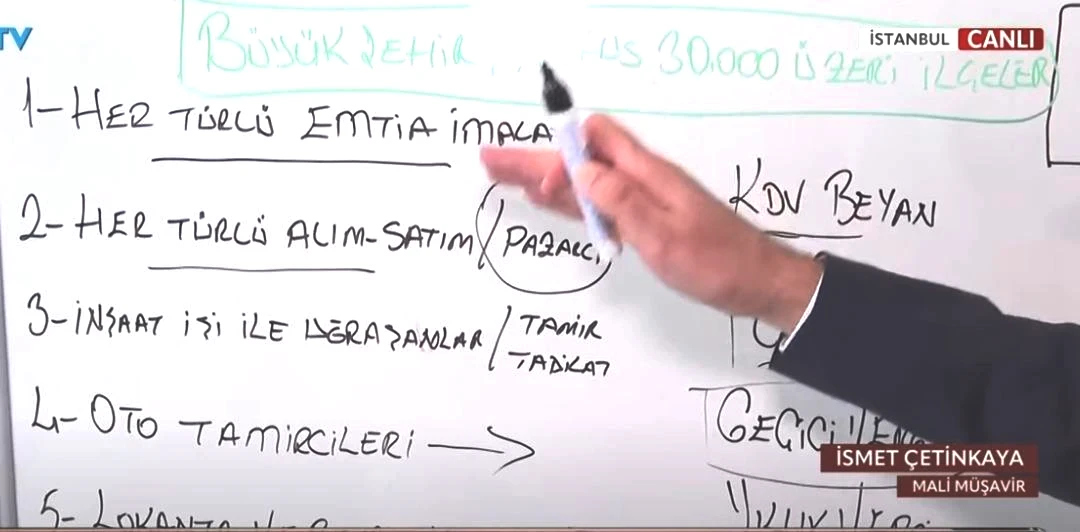 TV
İSTANBUL CANLI
BÜYÜK ŞEHİR 30.000 ÜZERİ İLÇELER
1- HER TÜRLÜ EMTİA İMALA
2- HER TÜRLÜ ALIM-SATIM / PAZARCI
3- İNŞAAT İŞİ İLE UĞRAŞANLAR / TAMİR
TADİLAT
4- OTO TAMİRCİLERİ →
5- LOKANTA
KDV BEYAN
GEÇİCİ VE
İSMET ÇETİNKAYA
MALİ MÜŞAVİR